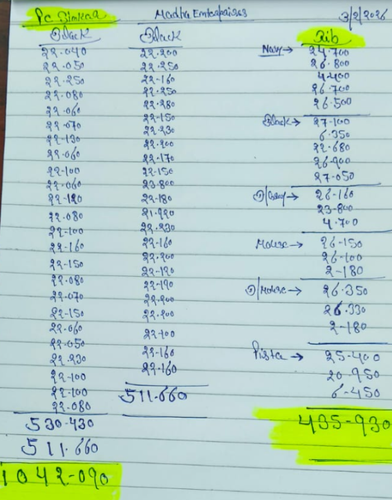 Madha Enterprises
3/2/2026
Black
22.040
22.050
22.250
22.080
22.060
22.070
22.130
22.060
22.100
22.060
22.120
22.080
22.100
22.160
22.150
22.080
22.070
22.150
22.060
22.050
22.230
22.100
22.100
22.080
530.430
511.660
1042-090
Black
22.200
22.250
22-160
22.250
22.280
22.150
22.230
22.200
22.170
22.150
23.800
22.180
21.920
22.230
22.160
22.200
22-120
22.190
22.200
22.200
22.100
22.160
22.160
511.660
Rib
Navy → 24.700
26.800
4.400
26.700
26.500
Black → 27.100
6.350
22.680
26.900
27.050
26.160
23.800
4.700
Mouse → 26.150
26.100
2-180
26.350
26.330
2-180
Pista → 25.400
20.950
6.450
435-930